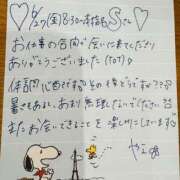 6/27(金)8:30〜本指名Sさん
お仕事の合間に会いに来てくださり
ありがとうございました(ToT)♡
体調が心配ですが その後どうですか??
暑さもあるし、あまり無理しないでくださいね
またお会いできることを楽しみにしています♡